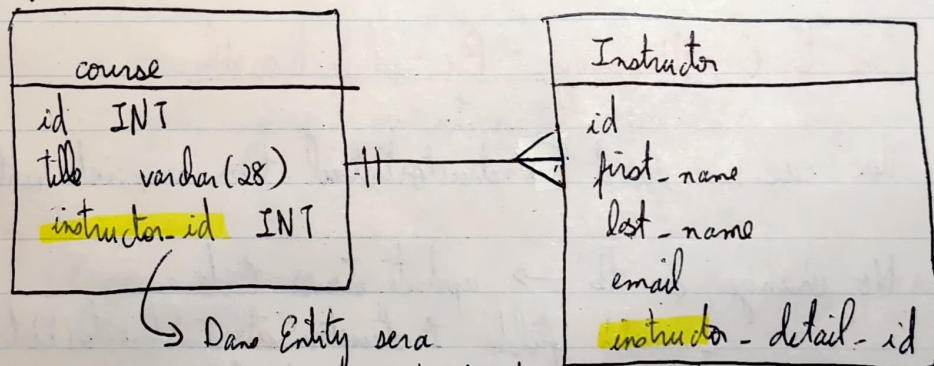 course
id INT
title varchar(28)
instructor_id INT
Dans Entity sera
Instructor
id
first_name
last_name
email
instructor_detail_id